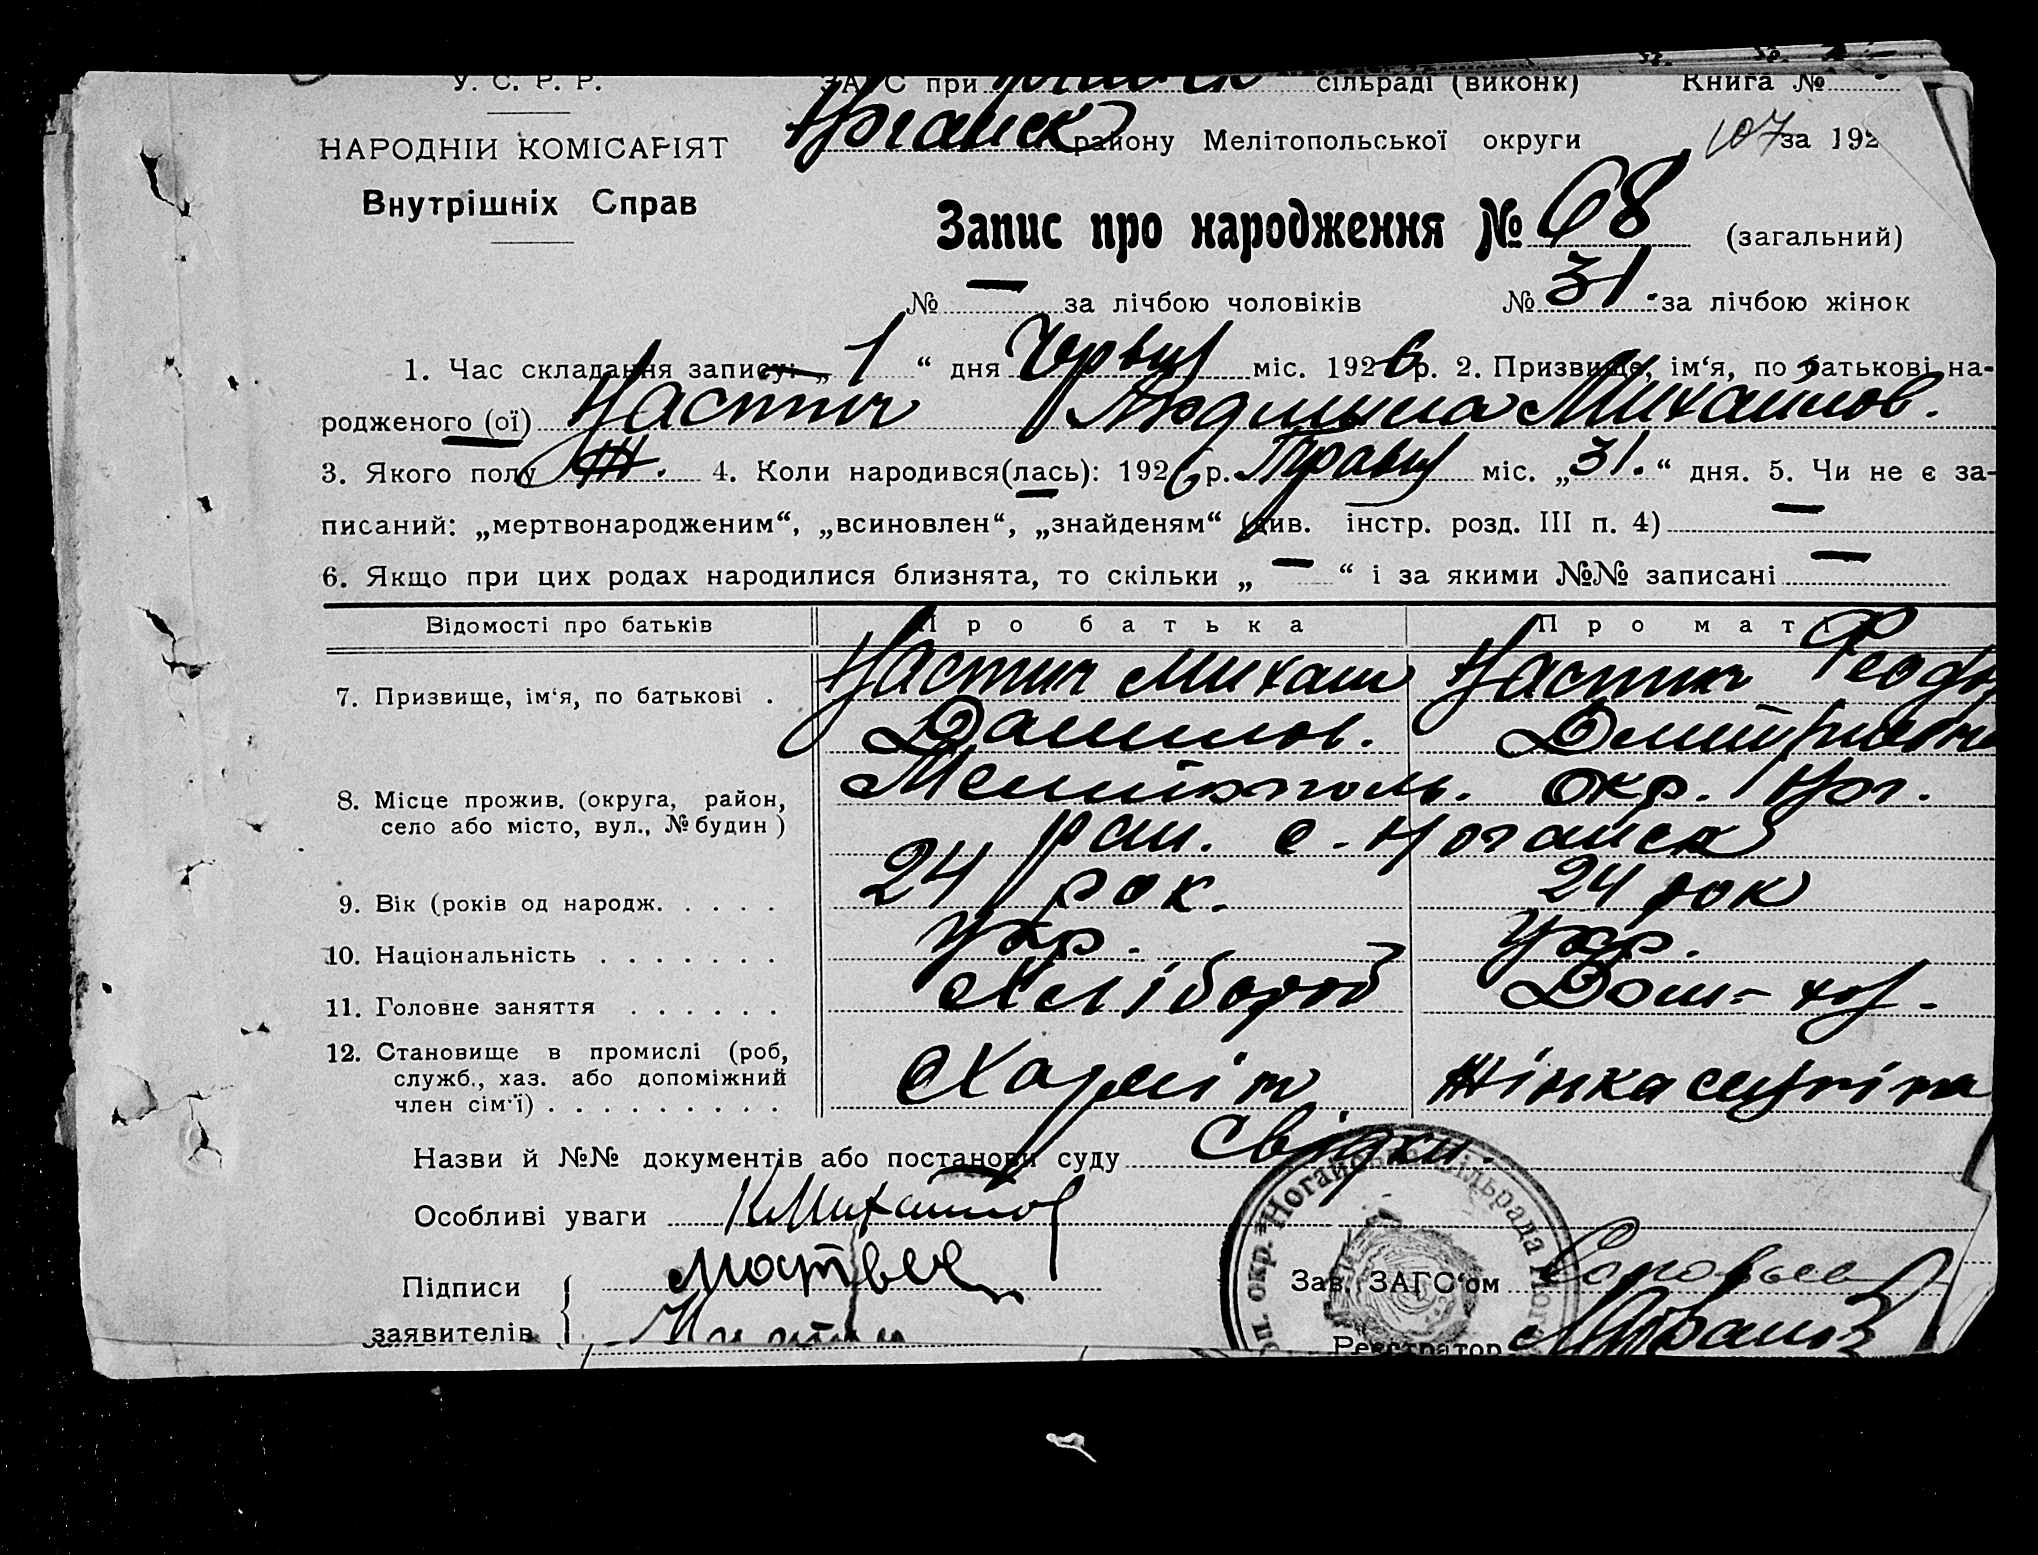 У. С. Р. Р. ЗАГС при сільраді (виконк) Книга №
НАРОДНІЙ КОМІСАРІЯТ Ногайск району Мелітопольської округи 107 за 192
Внутрішніх Справ
Запис про народження № 68 (загальний)
№ — за лічбою чоловіків № 31. за лічбою жінок
1. Час складання запису: „ 1 “ дня Червця міс. 1926 р. 2. Призвище, ім‘я, по батькові на-
родженого (ої) Настич Людмила Михайлов.
3. Якого полу Ж. 4. Коли народився(лась): 1926 р. Травня міс. „ 31. “ дня. 5. Чи не є за-
писаний: „мертвонародженим“, „всиновлен“, „знайденям“ (див. інстр. розд. III п. 4) —
6. Якщо при цих родах народилися близнята, то скільки „ — “ і за якими №№ записані —
Відомості про батьків Про батька Про матір
7. Призвище, ім‘я, по батькові . Настич Михаил Настич Феодо
Данилов. Дмитриевна
8. Місце прожив. (округа, район, Мелітополь. окр. Ног.
село або місто, вул., № будин ) рай. с. Ногайск
9. Вік (років од народж. . . . . 24 рок. 24 рок
10. Національність . . . . . . . Укр. Укр.
11. Головне заняття . . . . . . Хлібороб Дом-хоз.
12. Становище в промислі (роб,
служб., хаз. або допоміжний Жінка
член сім‘ї) . . . . . . . . .
Назви й №№ документів або постанови суду Свідки.
Особливі уваги Михайлов
Підписи
Зав. ЗАГС‘ом
заявителів
Реєстратор